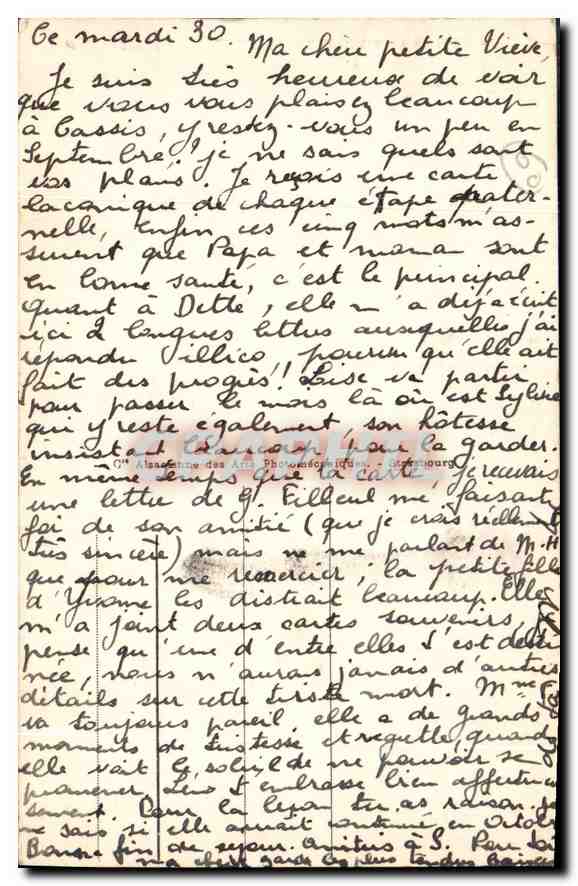 Ce mardi 30. Ma chère petite Viève,
Je suis très heureux de voir
que vous vous plaisez beaucoup
à Cassis, y restez-vous un peu en
Septembre? je ne sais quels sont
vos plans. Je reçois une carte
laconique de chaque étape pater-
nelle, enfin ces cinq mots m'as-
surent que Papa et maman sont
en bonne santé, c'est le principal.
Quant à Dette, elle m'a déjà écrit
ici 2 longues lettres auxquelles j'ai
répondu illico, pourvu qu'elle ait
fait des progrès! Lise va partir
pour passer le mois là où est Sylvie
qui y reste également, son hôtesse
insistant beaucoup pour la garder.
Cie Alsacienne des Arts Photomécaniques. - Strasbourg
En même temps que ta carte, je recevais
une lettre de G. Filleul me faisant
foi de son amitié (que je crois réellement
très sincère) mais ne me parlant de M-H
que pour me remercier; la petite fille
d'Yvonne les distrait beaucoup. Elle
m'a joint deux cartes souvenirs, je
pense qu'une d'entre elles t'est desti
née, nous n'aurons jamais d'autres
détails sur cette triste mort. Mme
va toujours pareil, elle a de grands
moments de tristesse et regrette, quand
elle voit le soleil de ne pouvoir se
promener. Lens t'embrasse bien affectueu
sement. Pour la leçon tu as raison, je
ne sais si elle aurait continué en Octobre
Bonne fin de séjour. Amitiés à S. Pour toi
ma chère garde les plus tendres baisers